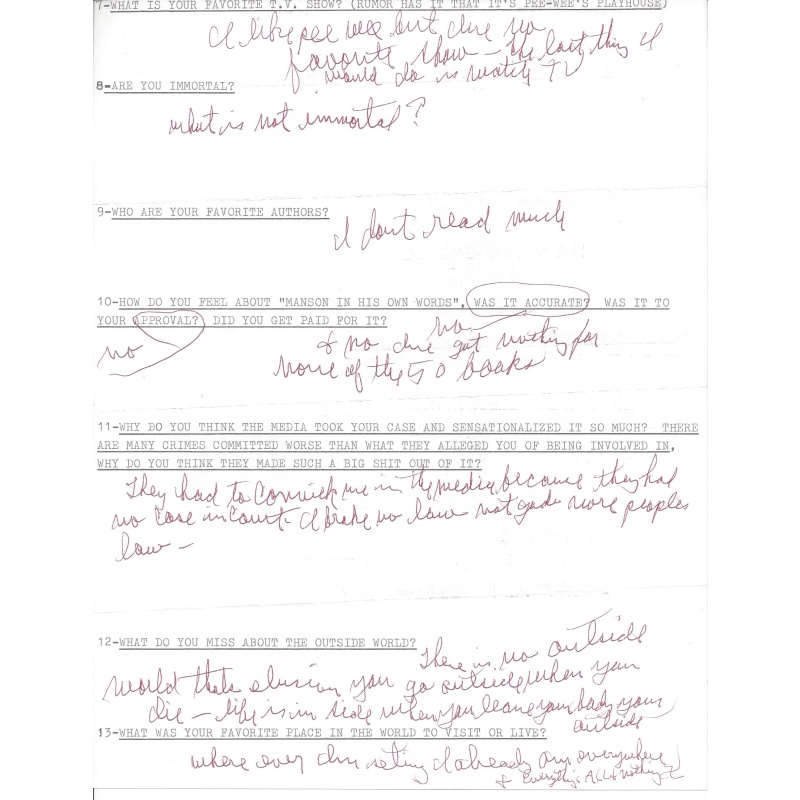 7-WHAT IS YOUR FAVORITE T.V. SHOW? (RUMOR HAS IT THAT IT'S PEE-WEE'S PLAYHOUSE)
I like pee wee but ive no
favorite show - the last thing I
would do is watch TV
8-ARE YOU IMMORTAL?
what is not immortal?
9-WHO ARE YOUR FAVORITE AUTHORS?
I dont read much
10-HOW DO YOU FEEL ABOUT "MANSON IN HIS OWN WORDS", WAS IT ACCURATE? WAS IT TO
YOUR APPROVAL? DID YOU GET PAID FOR IT?
no
no
& no ive got nothing for
none of the 50 books
11-WHY DO YOU THINK THE MEDIA TOOK YOUR CASE AND SENSATIONALIZED IT SO MUCH? THERE
ARE MANY CRIMES COMMITTED WORSE THAN WHAT THEY ALLEGED YOU OF BEING INVOLVED IN,
WHY DO YOU THINK THEY MADE SUCH A BIG SHIT OUT OF IT?
They had to me in the media because they had
no case in court - I broke no law not gods nore peoples
law -
12-WHAT DO YOU MISS ABOUT THE OUTSIDE WORLD?
There is no outside
world thats elusion you go outside when you
die - life is in side when you leave your body your
outside
13-WHAT WAS YOUR FAVORITE PLACE IN THE WORLD TO VISIT OR LIVE?
where ever Im I already am everywhere
& Everything ALL & nothing